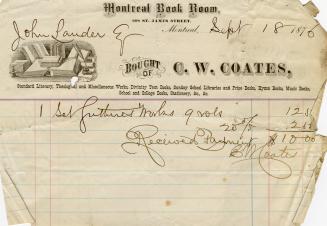 Montreal Book Room,
ST. JAMES STREET,
Montreal, Sept 18 1876
John Lauder Esq
BOUGHT OF C. W. COATES,
Standard Literary, Theological and Miscellaneous Works, Divinity Text Books, Sunday School Libraries and Prize Books, Hymns Books, Music Books,
School and College Books, Stationery, &c. &c.
1 Set Guthries Works 9 vols 12.50
20% 2.50
Received Payment $10.00
Coates